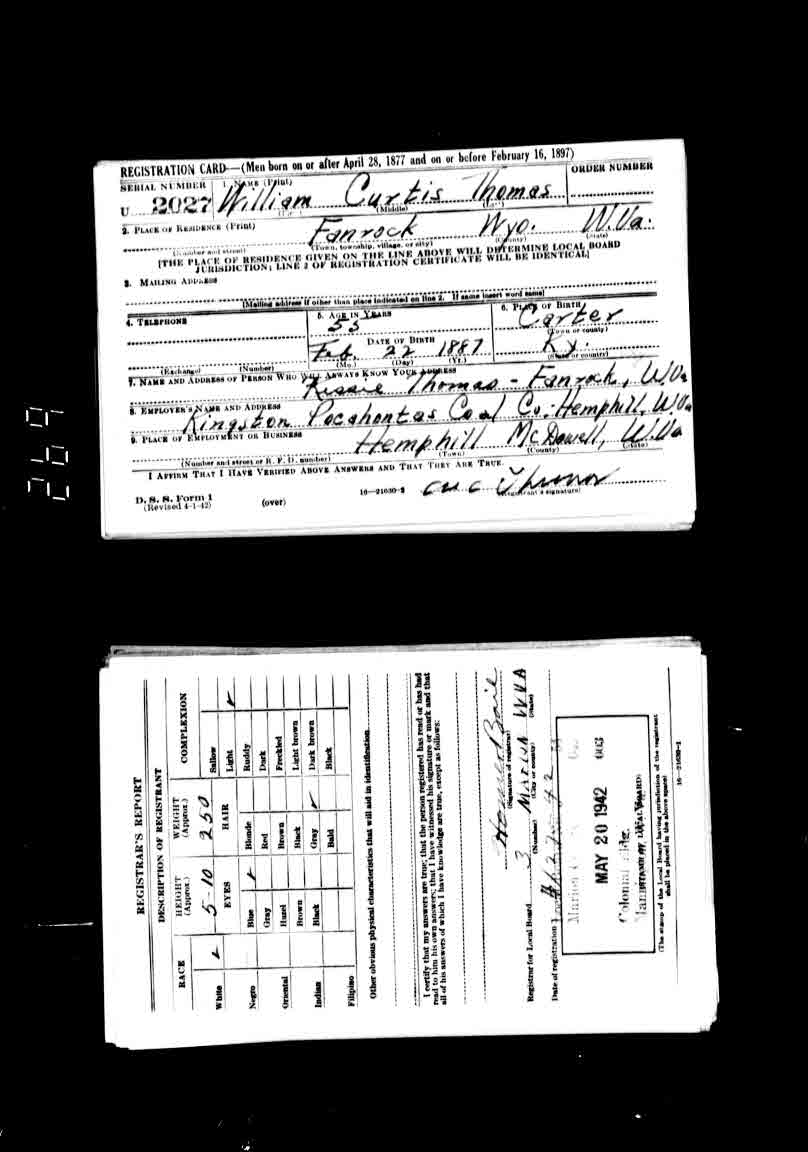 REGISTRATION CARD—(Men born on or after April 28, 1877 and on or before February 16, 1897)
SERIAL NUMBER 1. NAME (Print) ORDER NUMBER
U 2027 William Curtis Thomas
(Middle)
2. PLACE OF RESIDENCE (Print)
Fanrock Wyo. W.Va.
(Number and street) (Town, township, village, or city) (County) (State)
[THE PLACE OF RESIDENCE GIVEN ON THE LINE ABOVE WILL DETERMINE LOCAL BOARD
JURISDICTION; LINE 2 OF REGISTRATION CERTIFICATE WILL BE IDENTICAL]
3. MAILING ADDRESS
[Mailing address if other than place indicated on line 2. If same insert word same]
4. TELEPHONE 5. AGE IN YEARS 6. PLACE OF BIRTH
55 Carter
(Town or county)
DATE OF BIRTH
Feb. 22 1887 Ky.
(Exchange) (Number) (Mo.) (Day) (Yr.) (State or country)
7. NAME AND ADDRESS OF PERSON WHO WILL ALWAYS KNOW YOUR ADDRESS
Thomas - Fanrock, W.Va
8. EMPLOYER'S NAME AND ADDRESS
Kingston Pocahontas Coal Co. - Hemphill, W.Va
9. PLACE OF EMPLOYMENT OR BUSINESS
Hemphill McDowell, W.Va
(Number and street or R. F. D. number) (Town) (County) (State)
I AFFIRM THAT I HAVE VERIFIED ABOVE ANSWERS AND THAT THEY ARE TRUE.
D. S. S. Form 1
(Revised 4-1-42) (over) 16—21630-2
(Registrant's signature)
269
REGISTRAR'S REPORT
DESCRIPTION OF REGISTRANT
RACE HEIGHT (Approx.) WEIGHT (Approx.) COMPLEXION
5-10 250
White EYES HAIR Sallow
Light
Negro Blue Blonde Ruddy
Gray Red Dark
Oriental Hazel Brown Freckled
Brown Black Light brown
Indian Black Gray Dark brown
Bald Black
Filipino
Other obvious physical characteristics that will aid in identification
I certify that my answers are true; that the person registered has read or has had
read to him his own answers; that I have witnessed his signature or mark and that
all of his answers of which I have knowledge are true, except as follows:
(Signature of registrar)
Registrar for Local Board 3 Marion W VA
(Number) (City or county) (State)
Date of registration
Marion
MAY 20 1942 003
Colonial
(STAMP OF LOCAL BOARD)
(The stamp of the Local Board having jurisdiction of the registrant
shall be placed in the above space)
16—21630-1